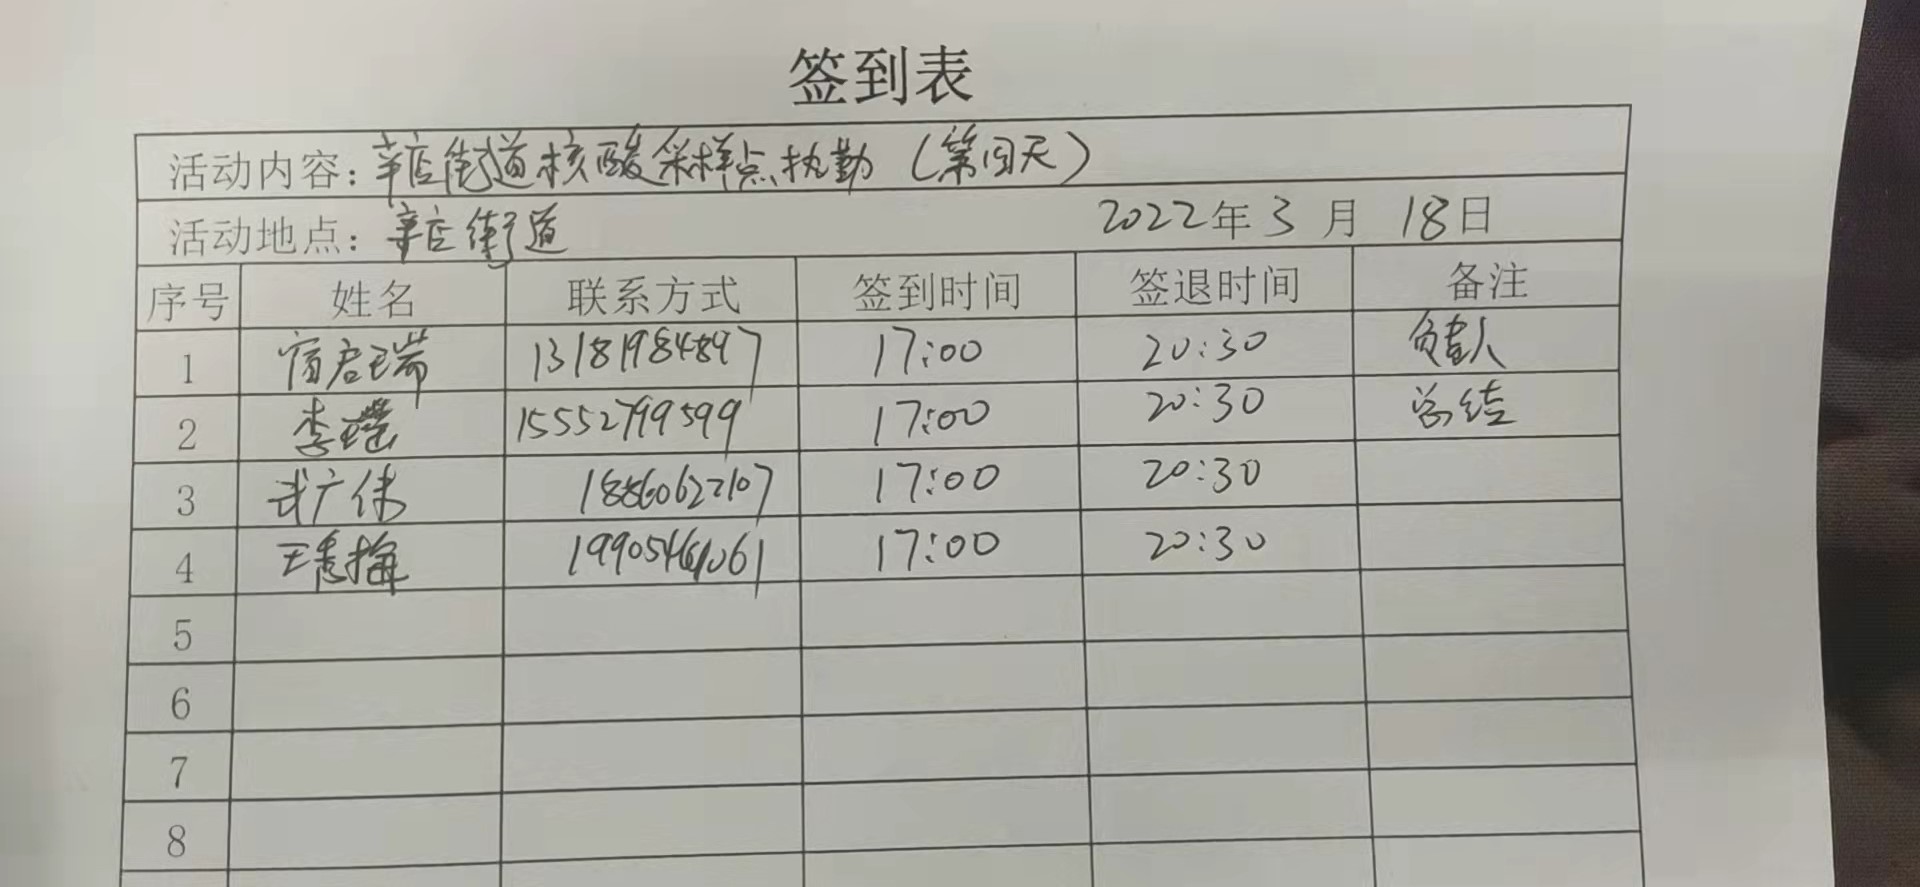 签到表
活动内容：辛店街道核酸采样点执勤（第四天）
活动地点：辛店街道 2022年3月18日
序号 姓名 联系方式 签到时间 签退时间 备注
1 宿启瑞 13181984897 17:00 20:30 负责人
2 李瑾 15552799599 17:00 20:30 总结
3 武广伟 18860622107 17:00 20:30
4 王秀梅 17:00 20:30
5
6
7
8